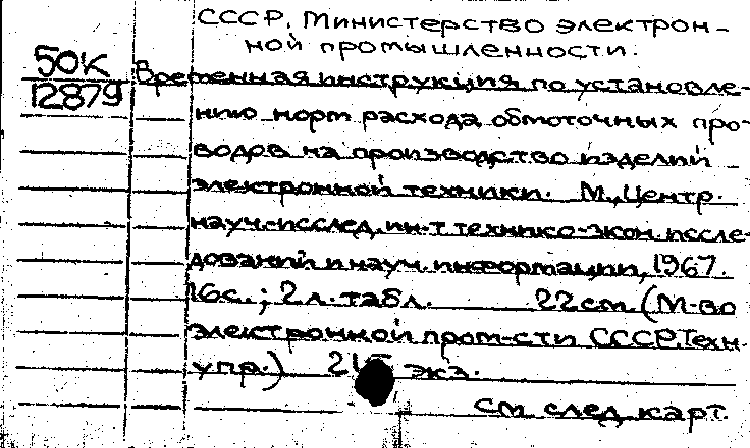 СССР, Министерство электрон-
ной промышленности.
50К
12879
Временная инструкция по установле-
нию норм расхода обмоточных про-
водов на производство изделий
электронной техники. М., Центр.
науч.-исслед. ин-т технико-экон. иссле-
дований и науч. информации, 1967.
16с.; 2 л. табл. 22 см (М-во
электронной пром-сти СССР. Техн.
упр.) экз.
См след карт.